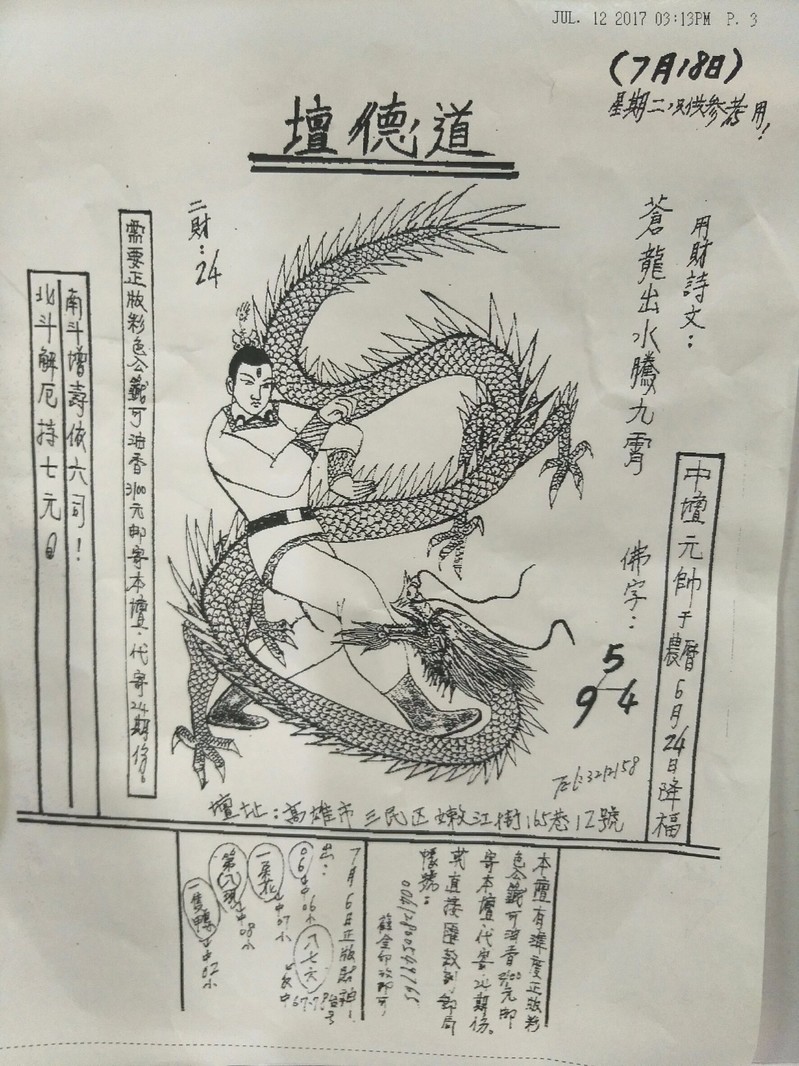 JUL. 12 2017 03:13PM P. 3
(7月18日)
星期二只供參考用!
壇德道
用財詩文:
蒼龍出水騰九霄
佛字:
5
9 4
中壇元帥于農曆6月24日降福
二財:24
需要正版彩色公籤可油香3100元郵寄本壇.代寄24期份。
南斗增壽依六司!
北斗解厄持七元
壇址:高雄市三民区嫩江街165巷12號
本壇有
正版彩
色公籤可油香3100元郵
寄本壇.代寄24期份。
或直接匯款到郵局
帳號:
7月6日正版
出:
06
中06小
八七六
一朵花
中07小
第八現
中08小
一隻鴨
中02小